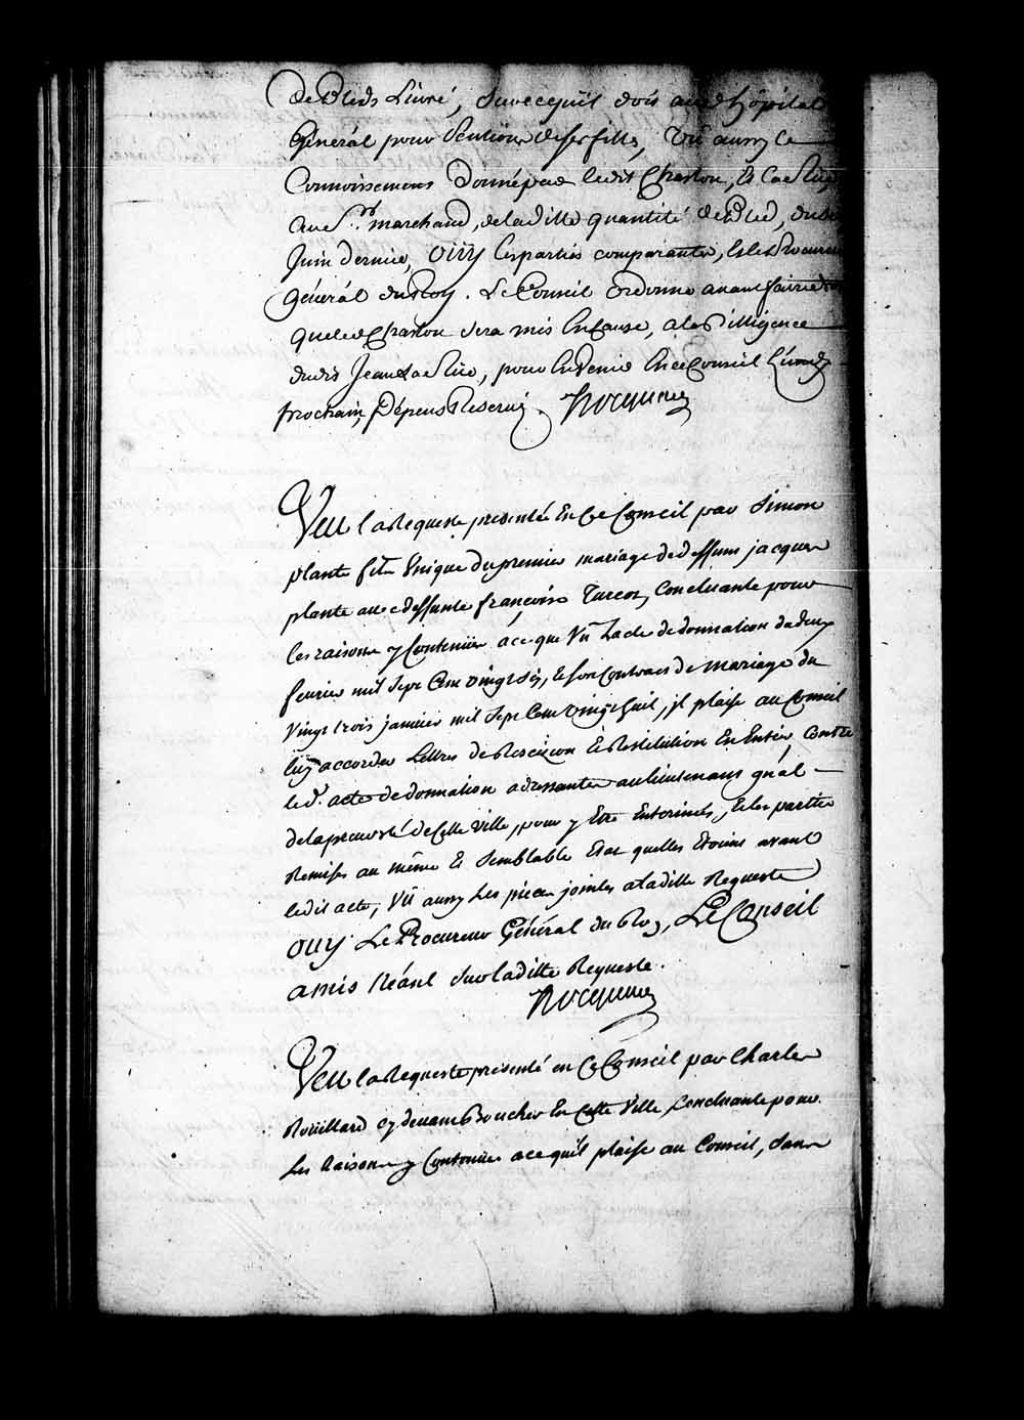 de Bleds Livré, Surcequil doit aud hôpital
Général pour Pention de ses filles, Vû aussy le
Connoissement Donné par ledit Charlou, et
au Sr. marchand, de ladille quantité de Bled, du
Juin dernier, Oüy les parties comparantes, Et le Procureur
Général du Roy. Le Conseil Ordonne avant faire
que led Charlou sera mis En Cause, ala Dilligence
dudit Jean, pour En Venir En ce Conseil
prochain, Dépens Reservéz. Hocquart
Veu la Requeste presentée En Ce Conseil par Simon
plante fils Unique du premier mariage de deffunt jacques
plante avec deffunte françoise Turcot, Concluante pour
les raisons y Contenües ace que Vû Lacte de donnation du deux
feurier mil Sept Cent vingt Six, et son Contract de Mariage du
vingt trois januier mil Sept Cent vingt huit, jl plaise au Conseil
luy accorder Lettres de Rescizion Et Restitution En Entier, Contre
led. acte de donnation adressantes au lieutenant gnal
de la preuosté de Cette Ville, pour y Etre Enterinées, Et les parties
Remises au même Et Semblable Etat quelles Etoient avant
ledit acte, Vû aussy Les pieces jointes a Ladille Requeste
oüy Le Procureur Général du Roy, Le Conseil
a mis Néant Sur ladille Requeste.
Hocquart
Veu la Requeste presenté en Ce Conseil par Charles
Roüillard cy devant Boucher En Cette Ville, Concluante pour
Les Raisons y Contenües ace qu'il plaise au Conseil, Sans